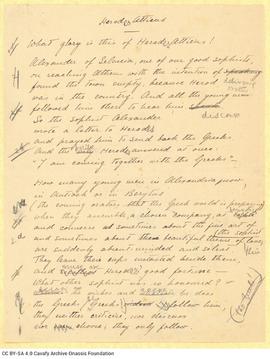 Herodes Atticus
What glory is this of Herodes Atticus!
Alexander of Seleucia, one of our good sophists,
on reaching Athens with the intention of
found the town empty, because Herod
was in the country. And all the young men
followed him there to hear him.
discourse
So the sophist Alexander
wrote a letter to Herodes
and prayed him to send back the Greeks.
And the Herodes answered at once:
"I am coming together with the Greeks."
How many young men in Alexandria now,
in Antioch or in Berytus
(the coming orators that the Greek world is preparing)
when they assemble, a chosen company, at
and converse at sometimes about the fine art of
and sometimes about their beautiful
are suddenly absent minded and silent.
They leave their cups untasted beside them,
and Herodes' good fortune —
What other sophist was so honoured? —
and does
the Greeks (Greeks!) follow him,
they neither criticise, nor discuss
nor choose; they only follow.
CC BY-SA 4.0 Cavafy Archive Onassis Foundation